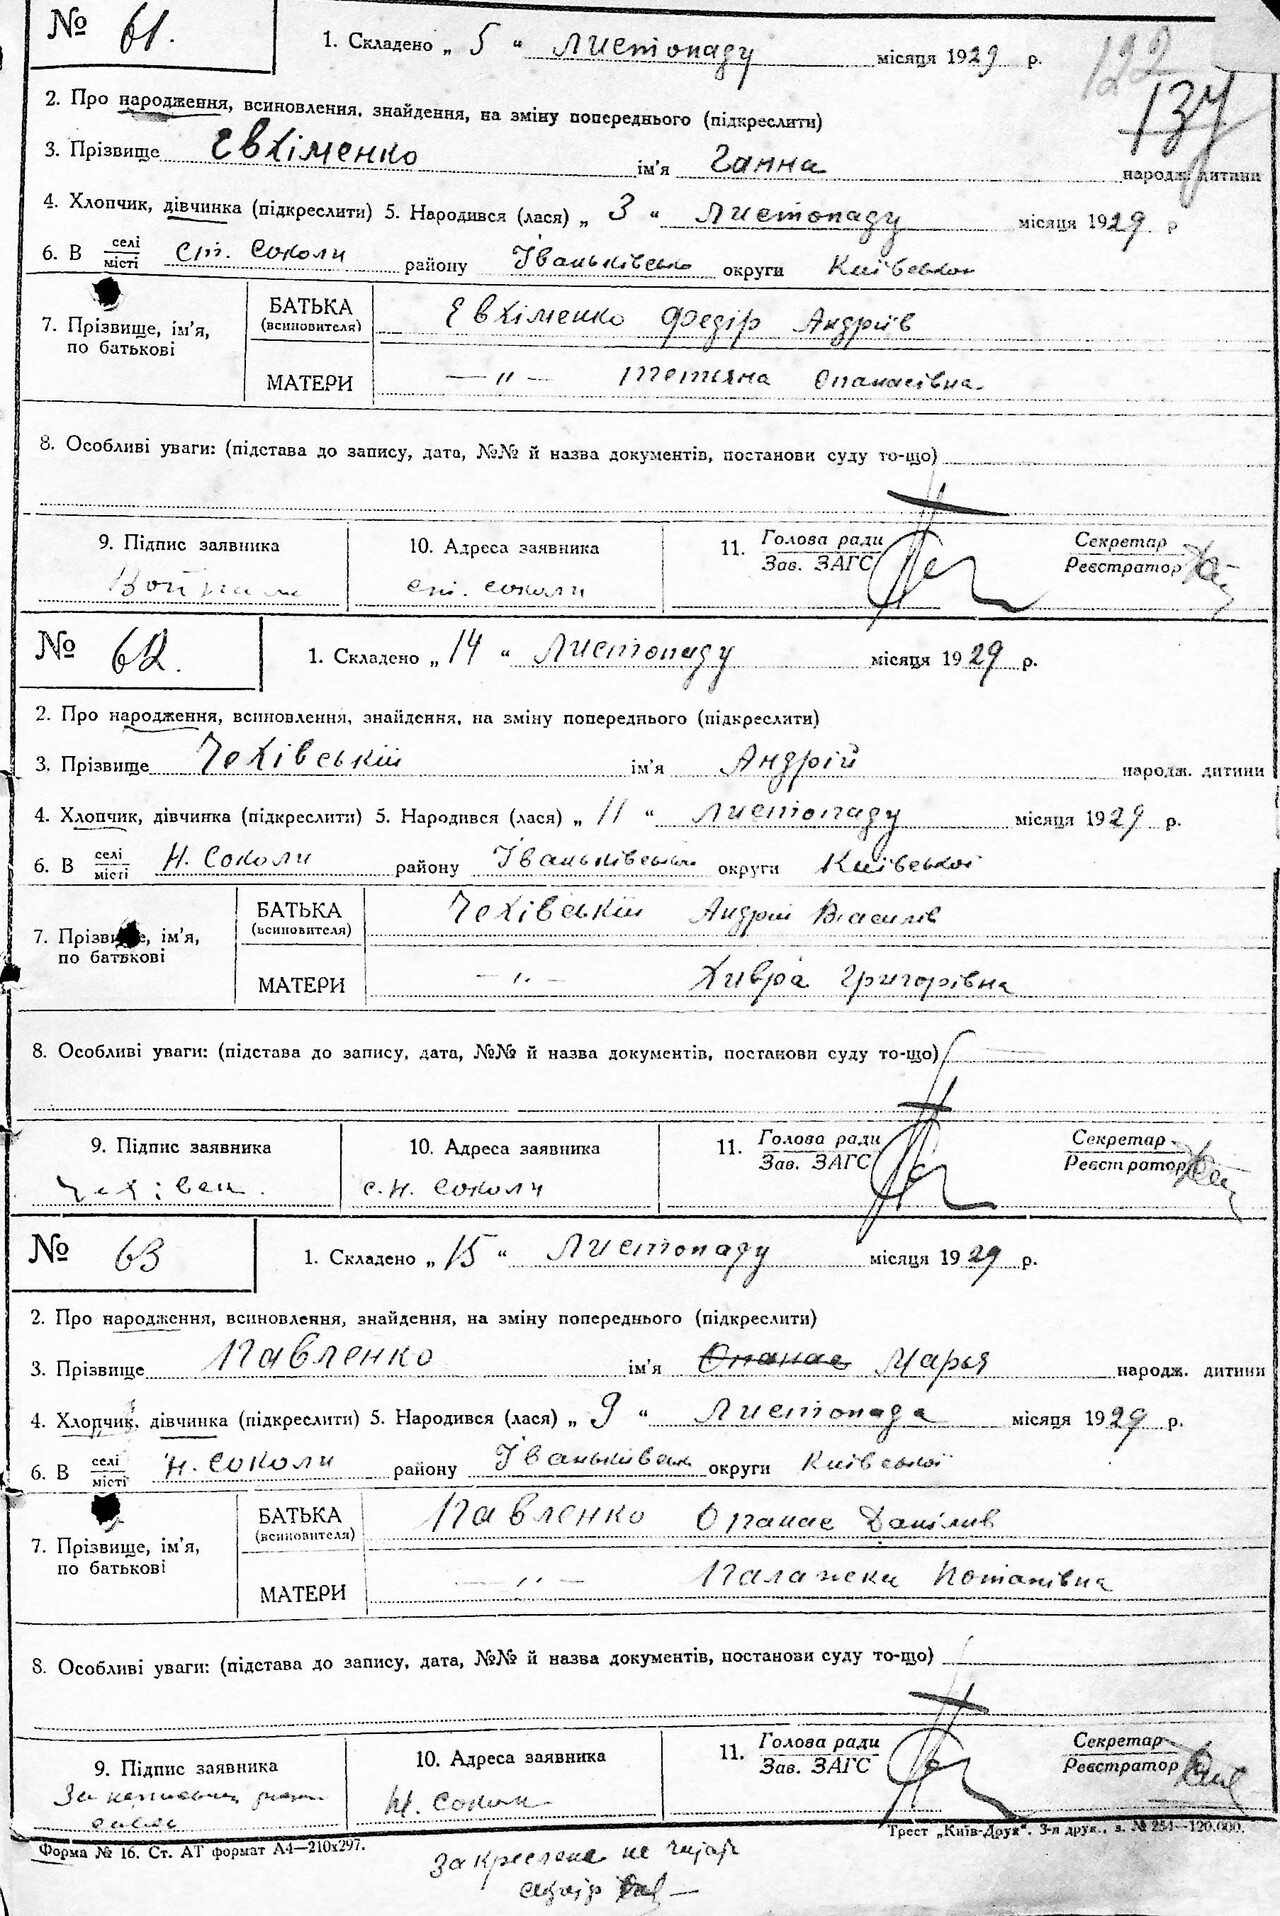 № 61.
1. Складено „ 5 “ листопаду місяця 1929 р.
122
137
2. Про народження, всиновлення, знайдення, на зміну попереднього (підкреслити)
3. Прізвище Евхіменко ім'я Ганна народж. дитини
4. Хлопчик, дівчинка (підкреслити) 5. Народився (лася) „ 3 “ листопаду місяця 1929 р
6. В селі/місті ст. Соколи району Іваньківсько округи Київськои
7. Прізвище, ім'я, по батькові
БАТЬКА (всиновителя) Евхіменко Федір Андріїв
МАТЕРИ —„— Тетяна Опанасівна
8. Особливі уваги: (підстава до запису, дата, №№ й назва документів, постанови суду то-що)
9. Підпис заявника
10. Адреса заявника
11. Голова ради
Зав. ЗАГС
Секретар
Реєстратор
ст. соколи
№ 62.
1. Складено „ 14 “ Листопаду місяця 1929 р.
2. Про народження, всиновлення, знайдення, на зміну попереднього (підкреслити)
3. Прізвище Чехівській ім'я Андрій народж. дитини
4. Хлопчик, дівчинка (підкреслити) 5. Народився (лася) „ 11 “ листопаду місяця 1929 р.
6. В селі/місті Н. Соколи району Іваньківськи округи Київської
7. Прізвище, ім'я, по батькові
БАТЬКА (всиновителя) Чехівській Андрій Василів
МАТЕРИ —„— Хивра Григорівна
8. Особливі уваги: (підстава до запису, дата, №№ й назва документів, постанови суду то-що)
9. Підпис заявника
10. Адреса заявника
11. Голова ради
Зав. ЗАГС
Секретар
Реєстратор
с. Н. Соколи
№ 63
1. Складено „ 15 “ Листопаду місяця 1929 р.
2. Про народження, всиновлення, знайдення, на зміну попереднього (підкреслити)
3. Прізвище Павленко ім'я Опанас Марья народж. дитини
4. Хлопчик, дівчинка (підкреслити) 5. Народився (лася) „ 9 “ Листопада місяця 1929 р.
6. В селі/місті Н. Соколи району Іваньківськ округи Київської
7. Прізвище, ім'я, по батькові
БАТЬКА (всиновителя) Павленко Опанас Данілив
МАТЕРИ —„— Палажка Потапівна
8. Особливі уваги: (підстава до запису, дата, №№ й назва документів, постанови суду то-що)
9. Підпис заявника
10. Адреса заявника
11. Голова ради
Зав. ЗАГС
Секретар
Реєстратор
Н. Соколи
Форма № 16. Ст. АТ формат А4—210х297.
Трест „Київ-Друк“. 3-я друк., з. № 254—120.000.
Закреслене не